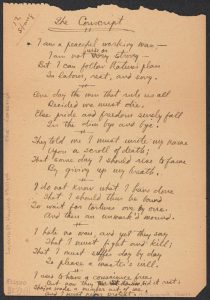 The Conscript
I am a peaceful working man –
I am not very strong
But I can follow Nature's plan
In labor, rest, and song.
One day the men that rule us all
Decided we must die,
Else pride and freedom surely fall
In the dim bye and bye.
They told me I must write my name
Upon a scroll of death;
That some day I should rise to fame
By giving up my breath.
I do not know what I have done
That I should thus be bound
To wait for tortures one by one
And then an unmark'd mound.
I hate no man and yet they say
That I must fight and kill;
That I must suffer day by day
To please a master's will.